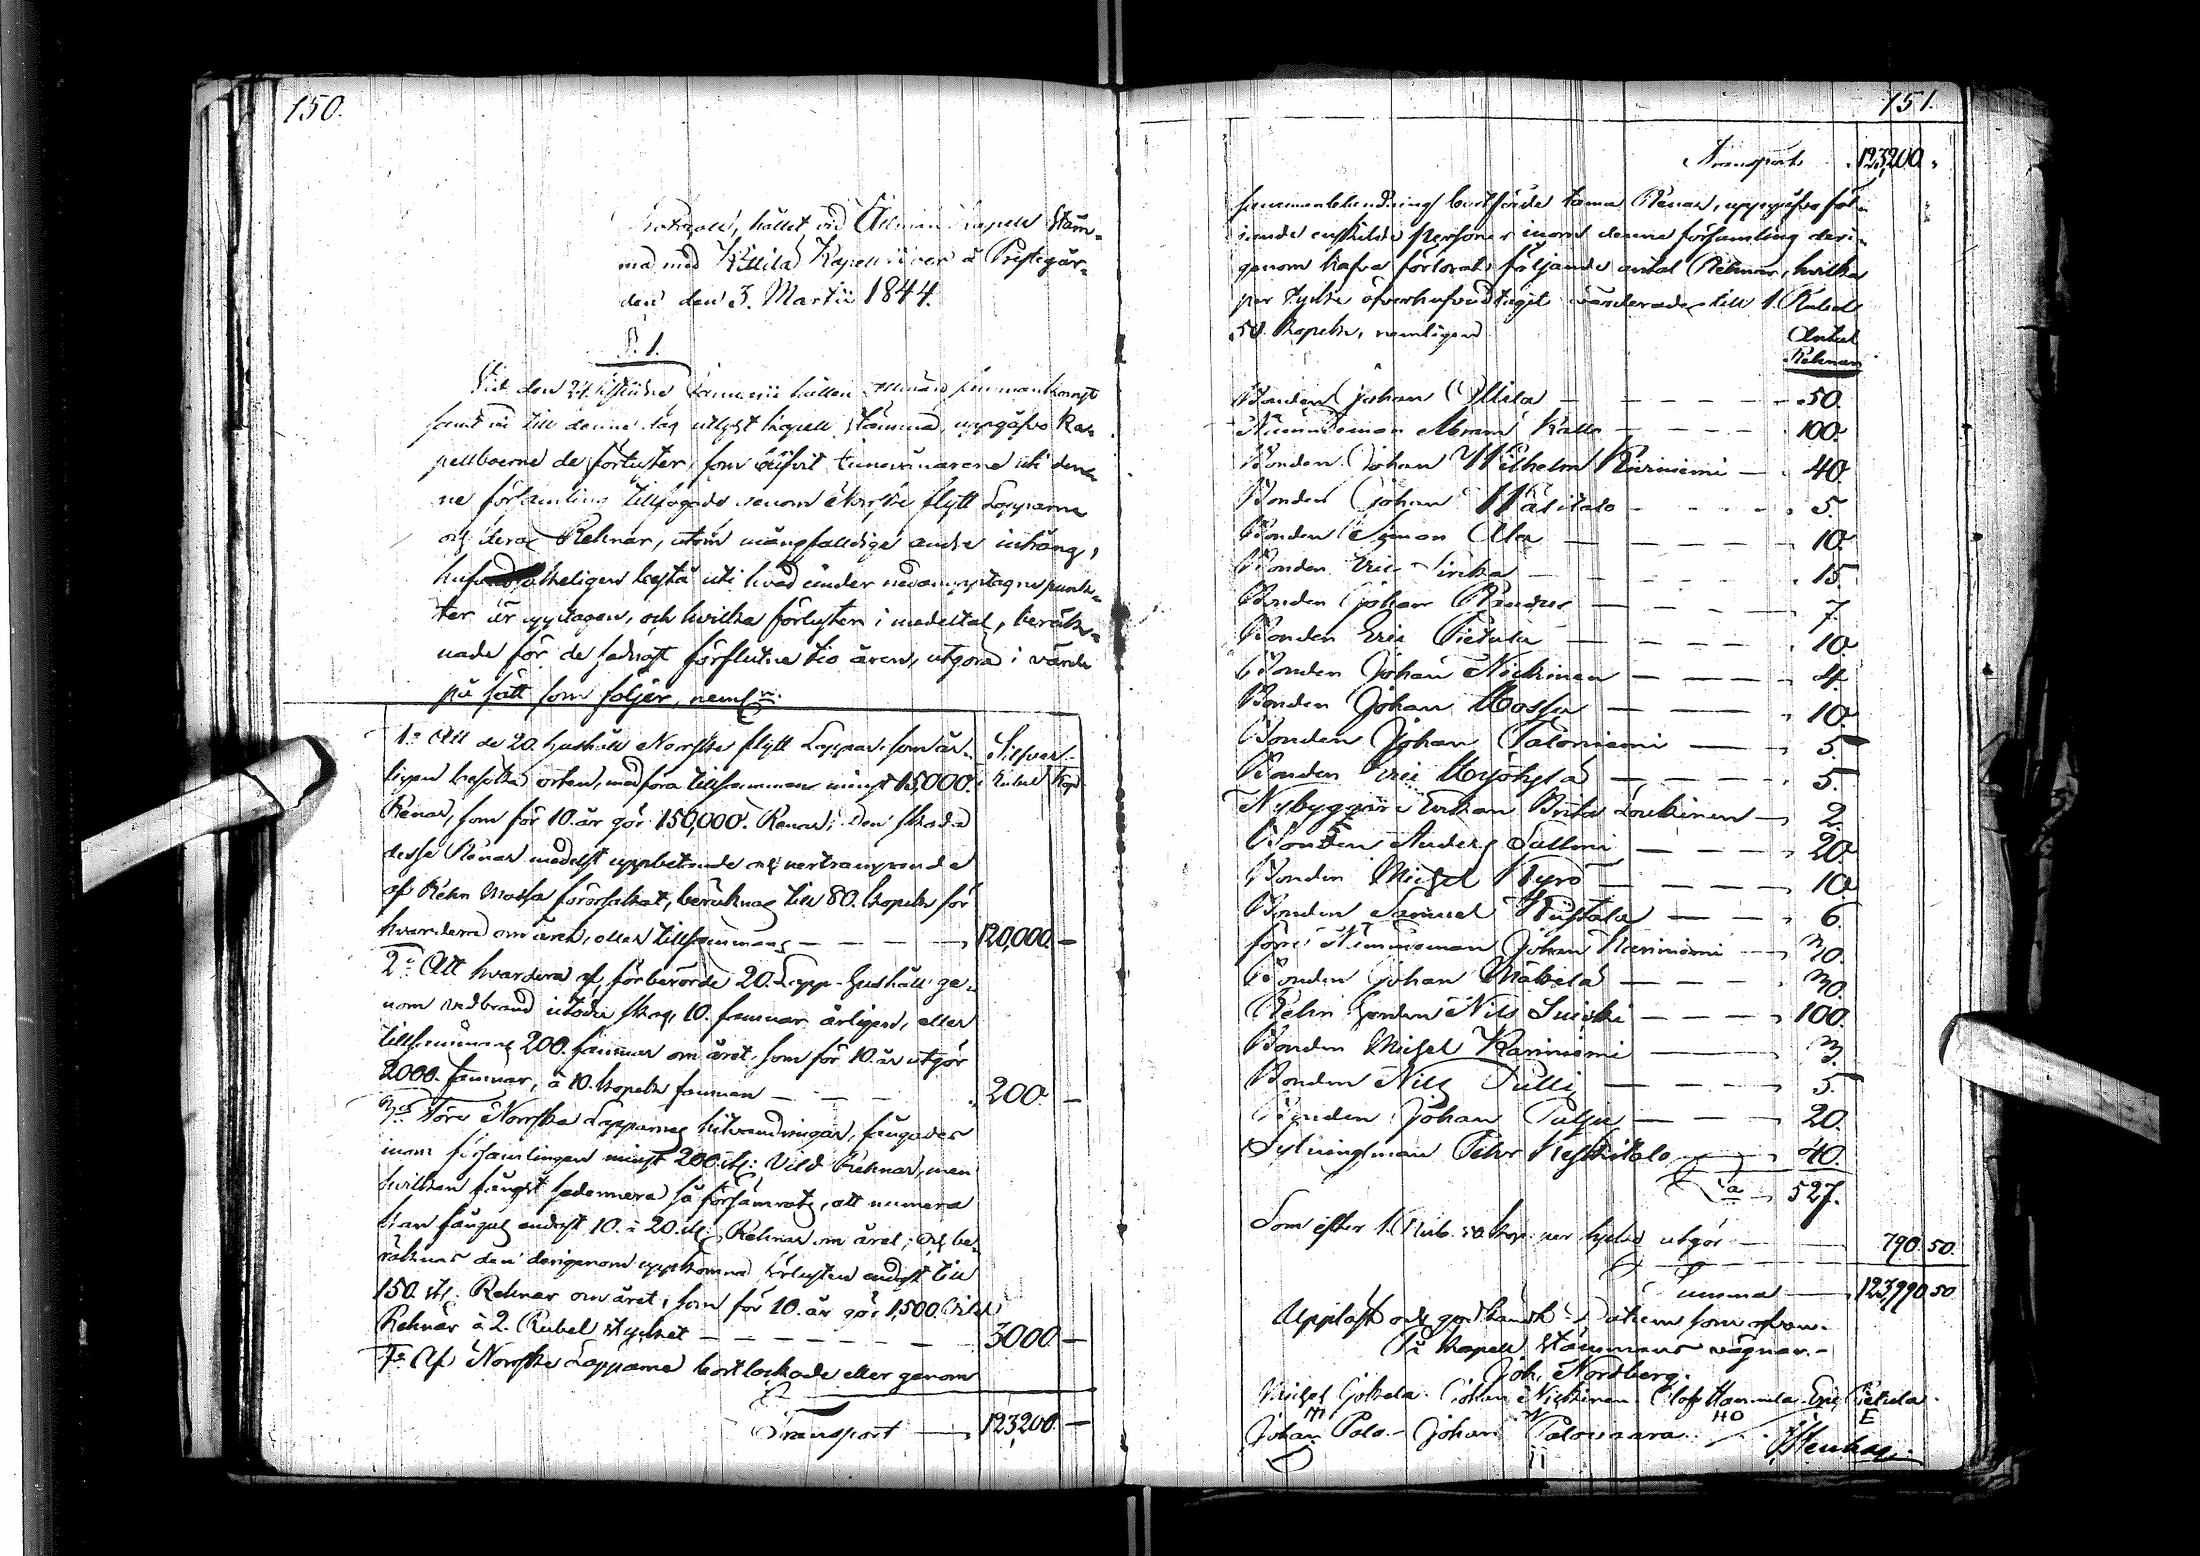 150.
Protocoll, hållet vid Allmän Kapell Stäm-
ma med Kittilä Kapell å Prestegår-
den den 3. Martii 1844.
§. 1.
Vid den 24. sistl. Januarii hållen allmän
samt vid till denne dag utlyst kapell Stämma, uppgåfvo Ka-
pellboerne de förluster, som uti den-
ne församling tillfogade genom Norske flytt Lapparne
och deras Rehnar, utom mångfalldiga andre intrång,
bestå uti hvad under nedanupptagne punk-
ter är upptagen, och hvilka förluster i medeltal, beräk-
nade för de sednast förflutne tio åren, utgöra i värde
på sätt som följer, neml.
1o Att de 20. hushåll Norske flytt Lappar, som år-
Silfver
ligen besöka orten, medföra tillsammans minst 15,000.
Rubel Kop
Renar, som för 10. år gör 150,000. Renar; Den skada
desse Renar medelst uppbetande och nertrampande
af Rehn Mossa förorsakat, beräknas till 80. kopek för
hvardera om året, eller tillsammans — 120,000. —
2o Att hvardera af förberörde 20. Lapp-Hushåll ge-
nom vedbrand utöda skog, 10. famnar årligen, eller
tillsammans 200. famnar om året, som för 10. år utgör
2000. famnar, à 10. kopek famnen — 200. —
3o Före Norska Lapparnes hitvandringar, fångades
inom församlingen minst 200 st. Vild Rehnar, men
hvilken fångst sedermera så försämrats, att numera
kan fångas endast 10. à 20. st. Rehnar om året; och be-
räknas den derigenom uppkomna förlusten endast till
150. st. Rehnar om året, som för 10. år gör 1,500. Vild
Rehnar à 2. Rubel stycket — 3000. —
Af Norske Lapparne bortlockade eller genom
Transport — 123,200. —
151.
Transport 123,200.
sammanblandning bortförde tama Renar, uppgåfvo föl-
jande enskilde Personer inom denne församling deri-
genom hafva förlorat följande antal Rehnar, hvilka
per stycke öfverhufvudtaget värderades till 1. Rubel
50. kopek, nemligen
Antal
Rehnar
Bonden Johan Ollila — 50.
Nämndeman Abram Kallo — 100.
Bonden Johan Wilhelm Kariniemi — 40.
Bonden Johan Wälitalo — 5.
Bonden Simon Ala — 10.
Bonden Eric Sirkka — 15.
Bonden Johan Raudus — 7.
Bonden Eric Pietula — 10.
Bonden Johan Nickinen — 4.
Bonden Johan — 10.
Bonden Johan Taloniemi — 5.
Bonden Eric — 5.
Nybyggare Enkan Brita Loukinen — 2.
Bonden Anders Salloni — 20.
Bonden Michel Kyrö — 10.
Bonden Samuel — 6.
förre Nämndeman Johan Kariniemi — 20.
Bonden Johan Mäkelä — 30.
Rehn Herden Nils — 100.
Bonden Michel Kariniemi — 3.
Bonden Nils Pulli — 5.
Bonden Johan — 20.
Sytningsman Petter Keskitalo — 40.
Sa 527.
Som efter 1. Rub. 50 kop. per stycke utgör — 790. 50.
Summa — 123,990. 50
Uppläst och godkändt; Datum som ofvan.
På Kapell Stämmans vägnar.
Joh. Nordberg.
Michel Jokela. Johan Nickinen. Olof Hannula. Eric Pietula.
HO E
Johan Palo. Johan Palovaara.